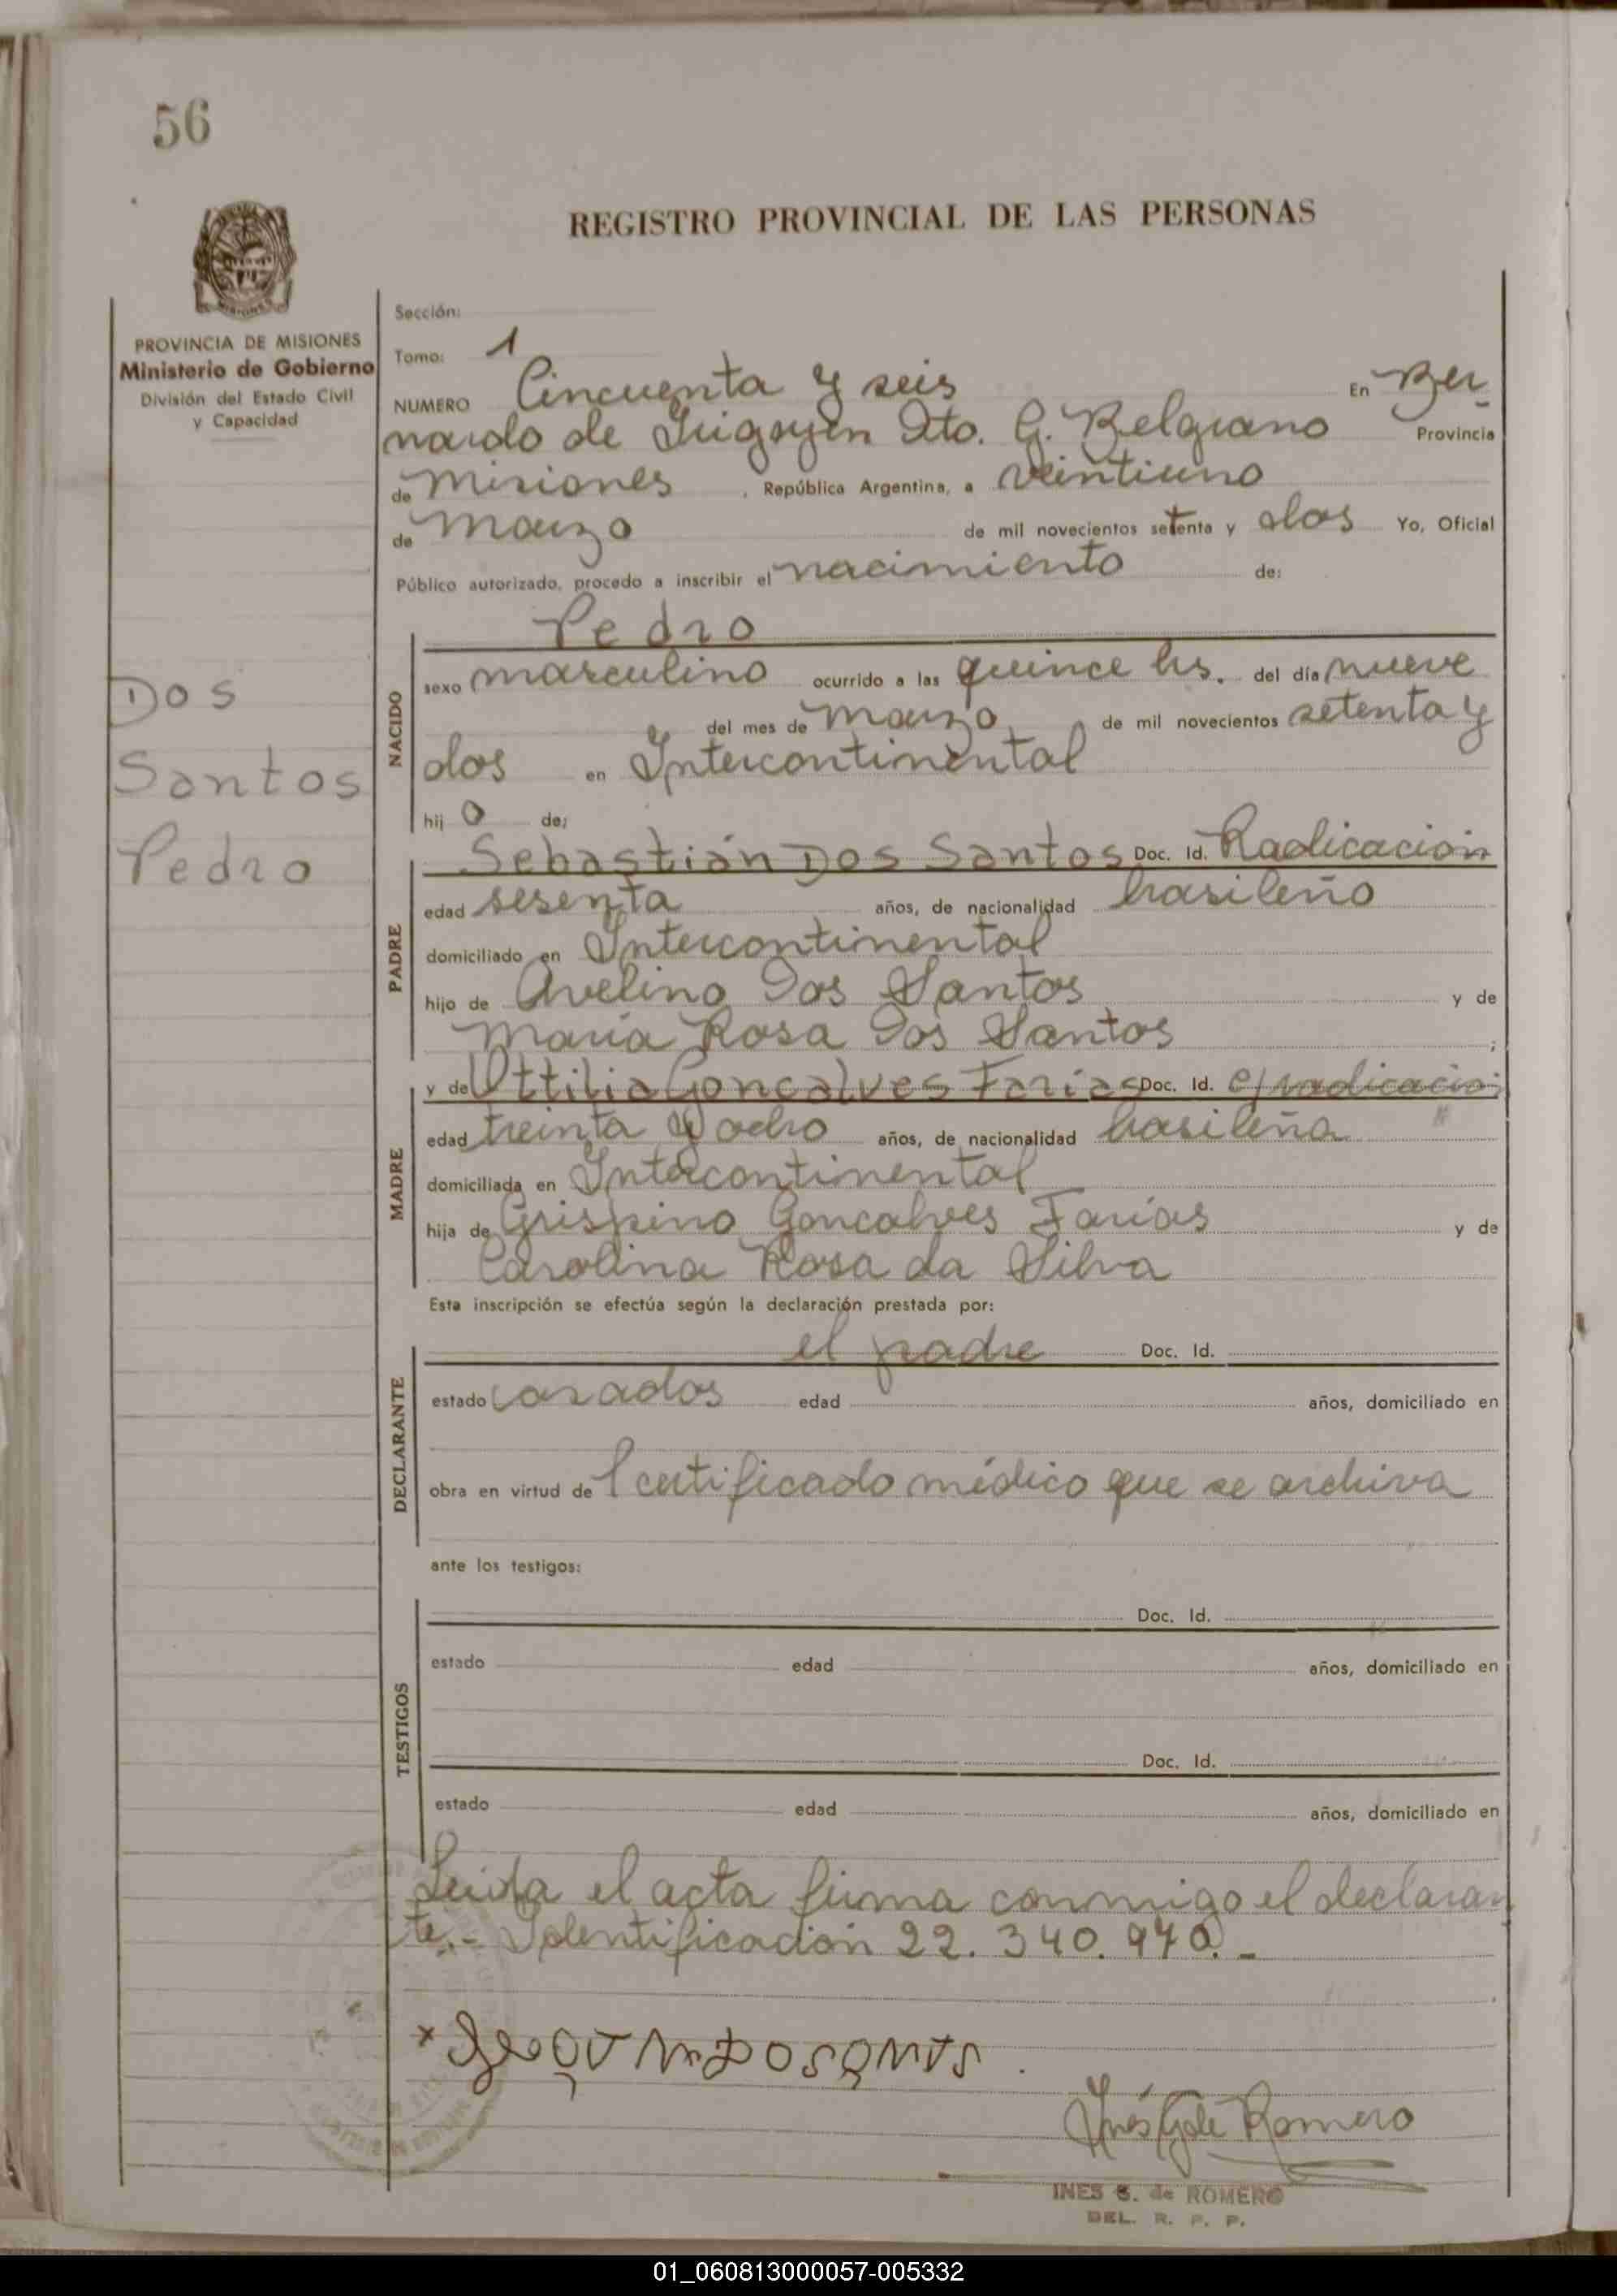 56
REGISTRO PROVINCIAL DE LAS PERSONAS
PROVINCIA DE MISIONES
Ministerio de Gobierno
División del Estado Civil
y Capacidad
Sección:
Tomo: 1
NUMERO Cincuenta y seis En Ber_
nardo de Irigoyen Dto. G. Belgrano Provincia
de Misiones , República Argentina, a veintiuno
de Marzo de mil novecientos setenta y dos Yo, Oficial
Público autorizado, procedo a inscribir el nacimiento de:
Pedro
NACIDO
sexo masculino ocurrido a las quince hs. del día nueve
del mes de Marzo de mil novecientos setenta y
dos en Intercontinental
hij o de:
Dos
Santos
Pedro
PADRE
Sebastián Dos Santos Doc. Id. Radicación
edad sesenta años, de nacionalidad brasileño
domiciliado en Intercontinental
hijo de Avelino Dos Santos y de
María Rosa Dos Santos ;
MADRE
y de Ottilia Goncalves Farias Doc. Id. c/radicación
edad treinta y ocho años, de nacionalidad brasileña
domiciliada en Intercontinental
hija de Grispino Goncalves Farias y de
Carolina Rosa da Silva
Esta inscripción se efectúa según la declaración prestada por:
DECLARANTE
el padre Doc. Id.
estado casados edad años, domiciliado en
obra en virtud de certificado médico que se archiva
ante los testigos:
TESTIGOS
Doc. Id.
estado edad años, domiciliado en
Doc. Id.
estado edad años, domiciliado en
Leída el acta firma conmigo el declaran
te.- Identificación 22.340.970.-
Inés G. de Romero
INES G. de ROMERO
DEL. R. P. P.
01_060813000057-005332